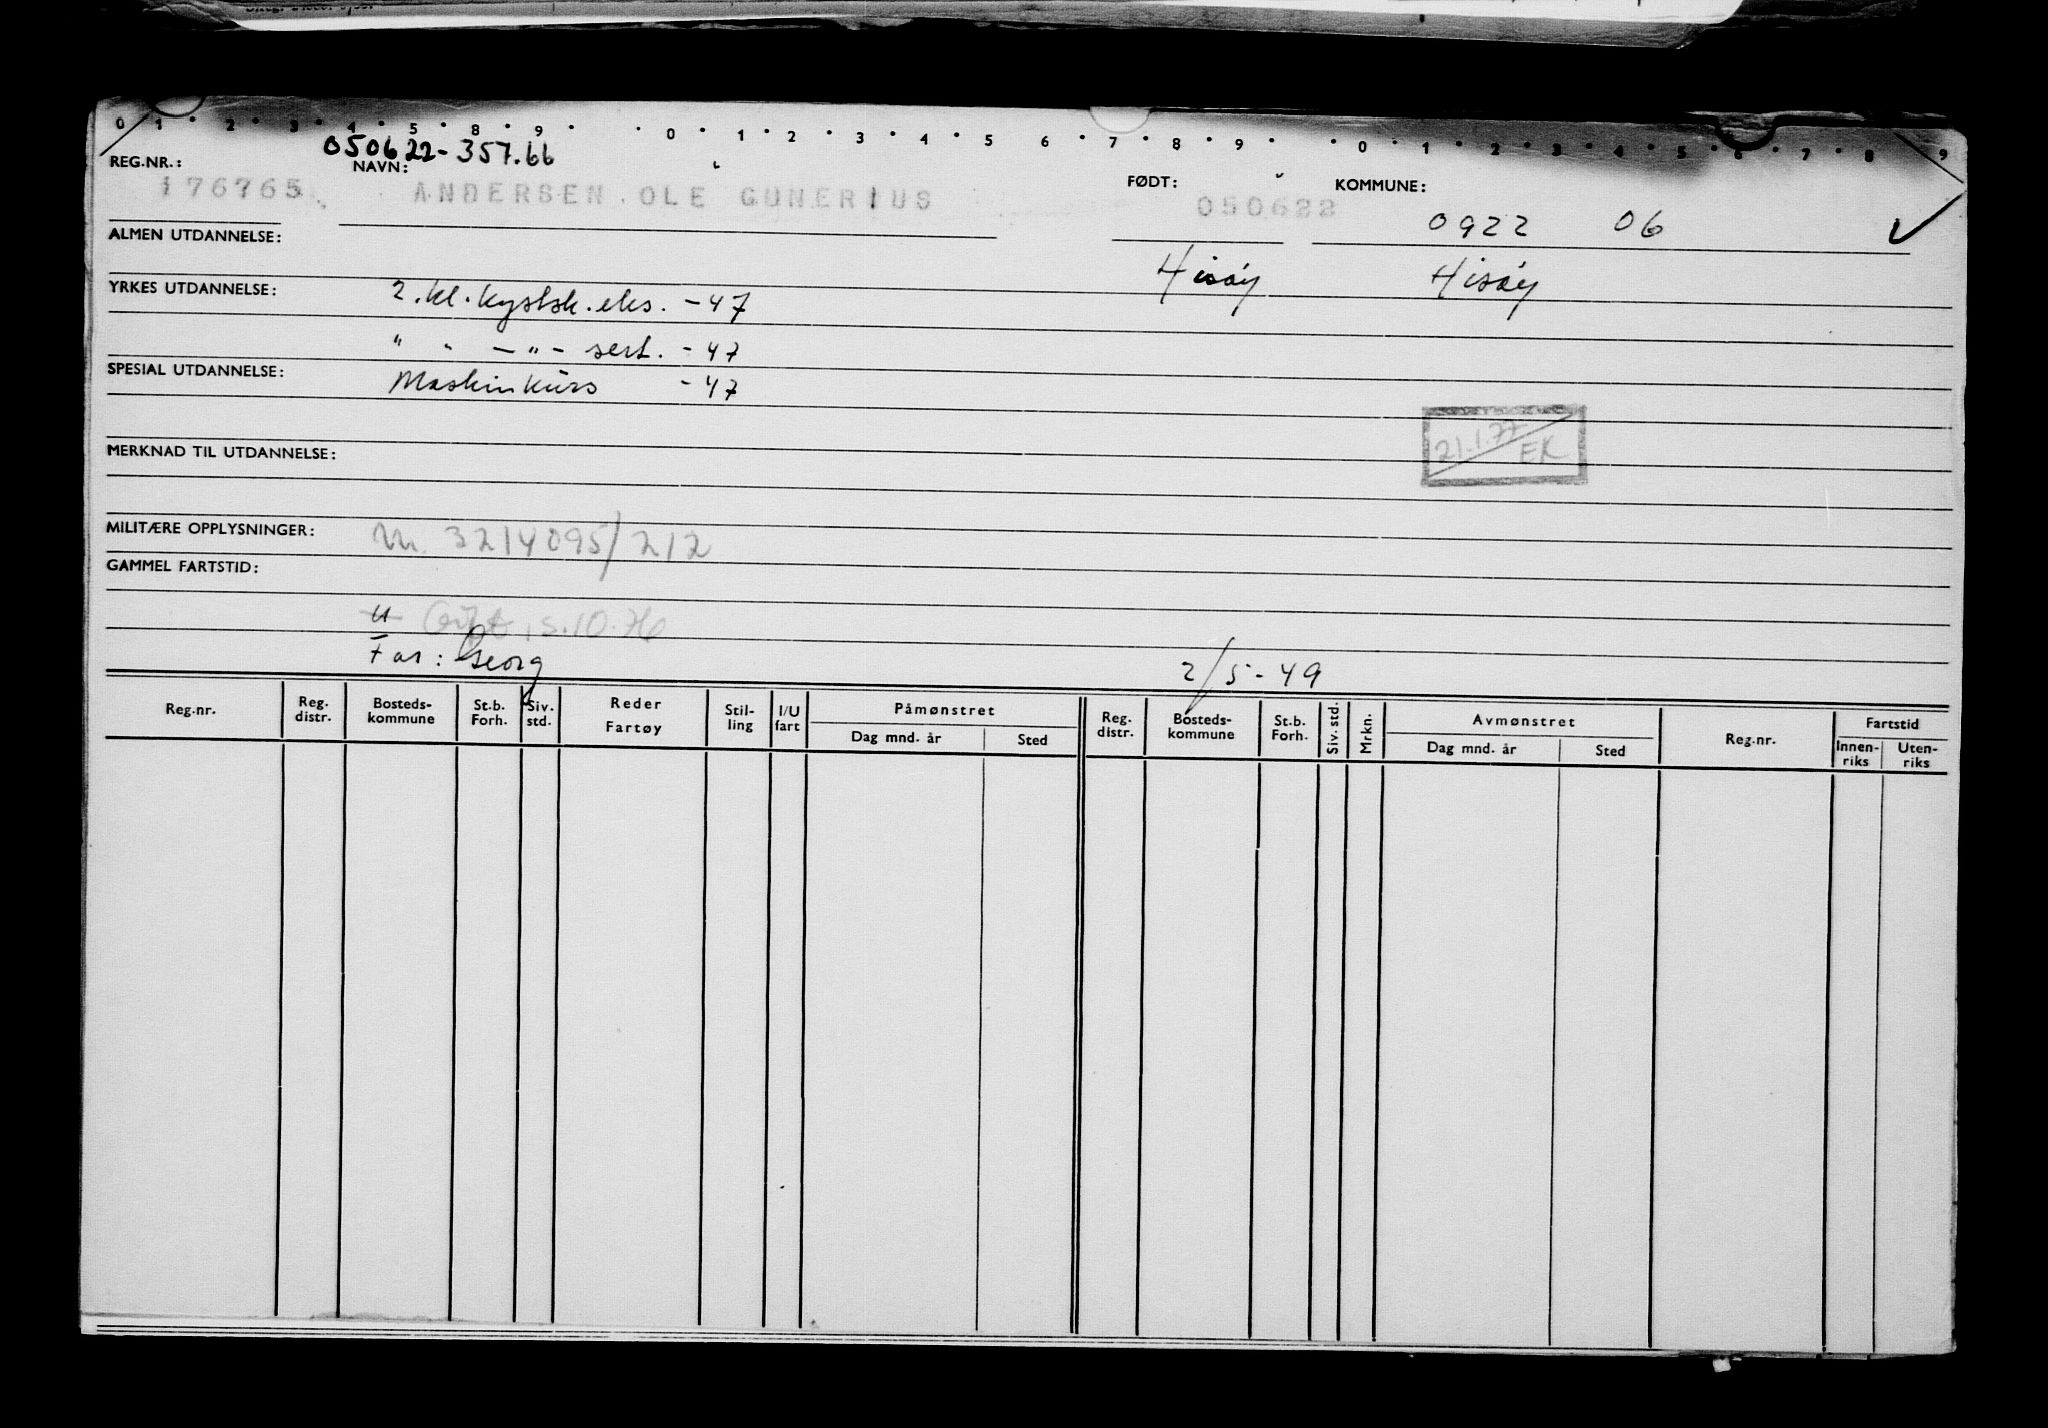 0 1 2 3 4 5 8 9 0 1 2 3 4 5 6 7 8 9 0 1 2 3 4 5 6 7 8 9
050622-357.66
REG.NR.: NAVN: FØDT: KOMMUNE:
176765 ANDERSEN OLE GUNERIUS 050622 0922 06
ALMEN UTDANNELSE: Hisøy Hisøy
YRKES UTDANNELSE: 2. kl. kystsk. eks. - 47
" " - " - sert. - 47
SPESIAL UTDANNELSE: Maskinkurs - 47
21.1.77 EK
MERKNAD TIL UTDANNELSE:
MILITÆRE OPPLYSNINGER: M. 3214095/212
GAMMEL FARTSTID:
u Gift 15.10.76
Far: Georg 2/5-49
Reg.nr. Reg. distr. Bosteds-kommune St.b. Forh. Siv. std. Reder Fartøy Stil-ling I/U fart Påmønstret Dag mnd. år Sted Reg. distr. Bosteds-kommune St.b. Forh. Siv. std. Mrkn. Avmønstret Dag mnd. år Sted Reg.nr. Fartstid Innen-riks Uten-riks